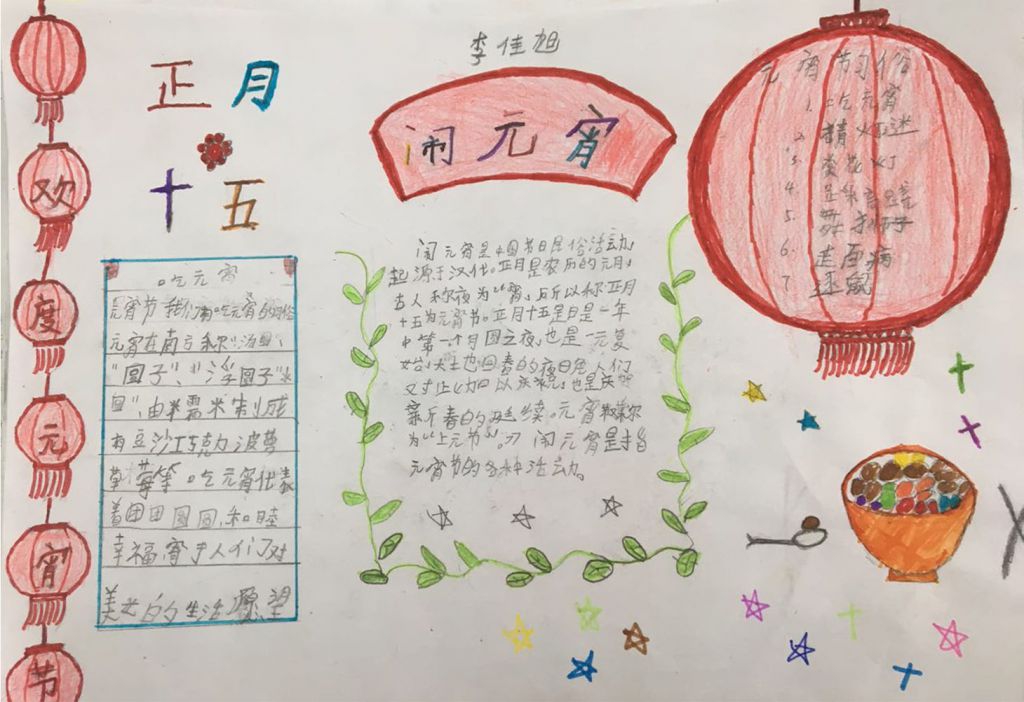 欢
度
元
宵
节
正月
十五
李佳旭
闹元宵
吃元宵
元宵节我们有吃元宵的习俗
元宵在南方称"汤圆"、
"圆子"、"浮圆子"水
圆",由米需米制成
有豆沙巧克力波萝
草莓等。吃元宵代表
着团团圆圆,和睦
幸福,寄于人们对
美好的生活愿望
闹元宵是中国节日民俗活动,
起源于汉代。正月是农历的元月,
古人称夜为"宵",所以称正月
十五为元宵节。正月十五是日是一年
中第一个月圆之夜,也是一元复
始,大土也回春的夜日免人们
又寸止以
新春的延续。元宵
为"上元节"。闹元宵是指
元宵节的各种活动。
元宵节习俗
1.吃元宵
2.猜灯迷
3.灯
4.是
5.舞
6.走百病
7.逐鼠